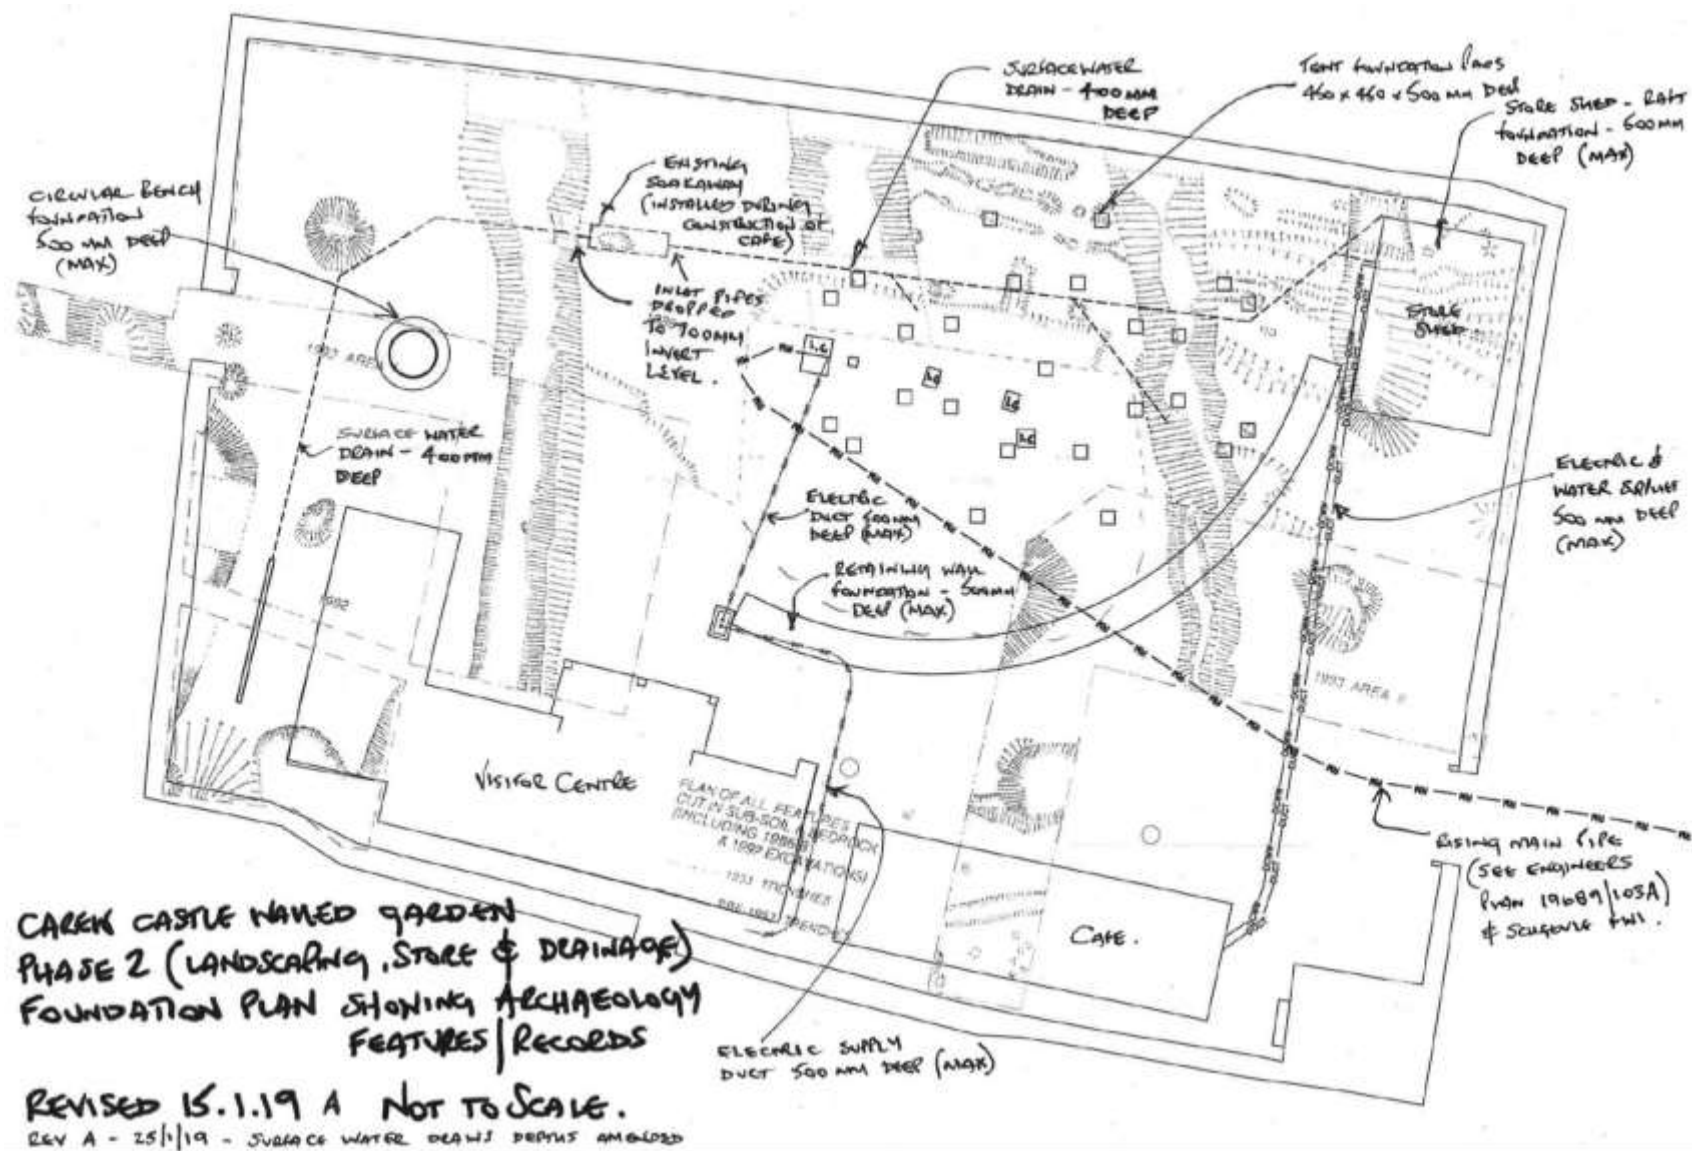 SURFACE WATER
DRAIN - 400MM
DEEP
TENT FOUNDATION PADS
450 x 450 x 500 MM DEEP
STORE SHED - RAFT
FOUNDATION - 500MM
DEEP (MAX)
CIRCULAR BENCH
FOUNDATION
500 MM DEEP
(MAX)
EXISTING
SOAKAWAY
(INSTALLED DURING
CONSTRUCTION OF
CAFE)
INLET PIPES
DROPPED
TO 700MM
INVERT
LEVEL.
STORE
SHED
1993 AREA
SURFACE WATER
DRAIN - 400MM
DEEP
ELECTRIC
DUCT 500MM
DEEP (MAX)
ELECTRIC &
WATER
500 MM DEEP
(MAX)
RETAINING WALL
FOUNDATION - 500MM
DEEP (MAX)
1992
1993 AREA
VISITOR CENTRE
PLAN OF ALL FEATURES
CUT IN SUB-SOIL & BEDROCK
(INCLUDING
& 1992 EXCAVATIONS)
1993 TRENCHES
PRE-1993 TRENCHES
RISING MAIN PIPE
(SEE ENGINEERS
PLAN 19689/105A)
& SCHEDULE
CAFE.
CAREW CASTLE WALLED GARDEN
PHASE 2 (LANDSCAPING, STORE & DRAINAGE)
FOUNDATION PLAN SHOWING ARCHAEOLOGY
FEATURES/RECORDS
ELECTRIC SUPPLY
DUCT 500 MM DEEP (MAX)
REVISED 15.1.19 A NOT TO SCALE.
REV A - 25/1/19 - SURFACE WATER DRAINS DEPTHS AMENDED